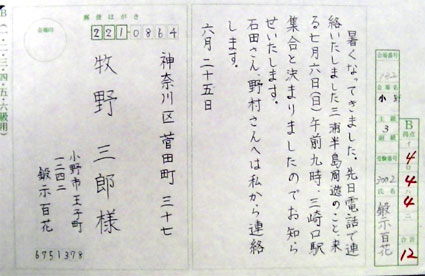 B
得点
4
4
4
合計
12
会場名
小野
3
級
受験番号
3002
氏名
鍛示百花
暑くなってきました。先日電話で連
絡いたしました三浦半島周遊のこと、来
る七月六日(日)午前九時、三崎口駅
集合と決まりましたのでお知ら
せいたします。
石田さん、野村さんへは私から連絡
します。
六月二十五日
郵便はがき
221-0864
神奈川区菅田町三十七
牧野三郎様
小野市王子町
一二四二
鍛示百花
6751378
B(一・二・三・四・五・六級用)